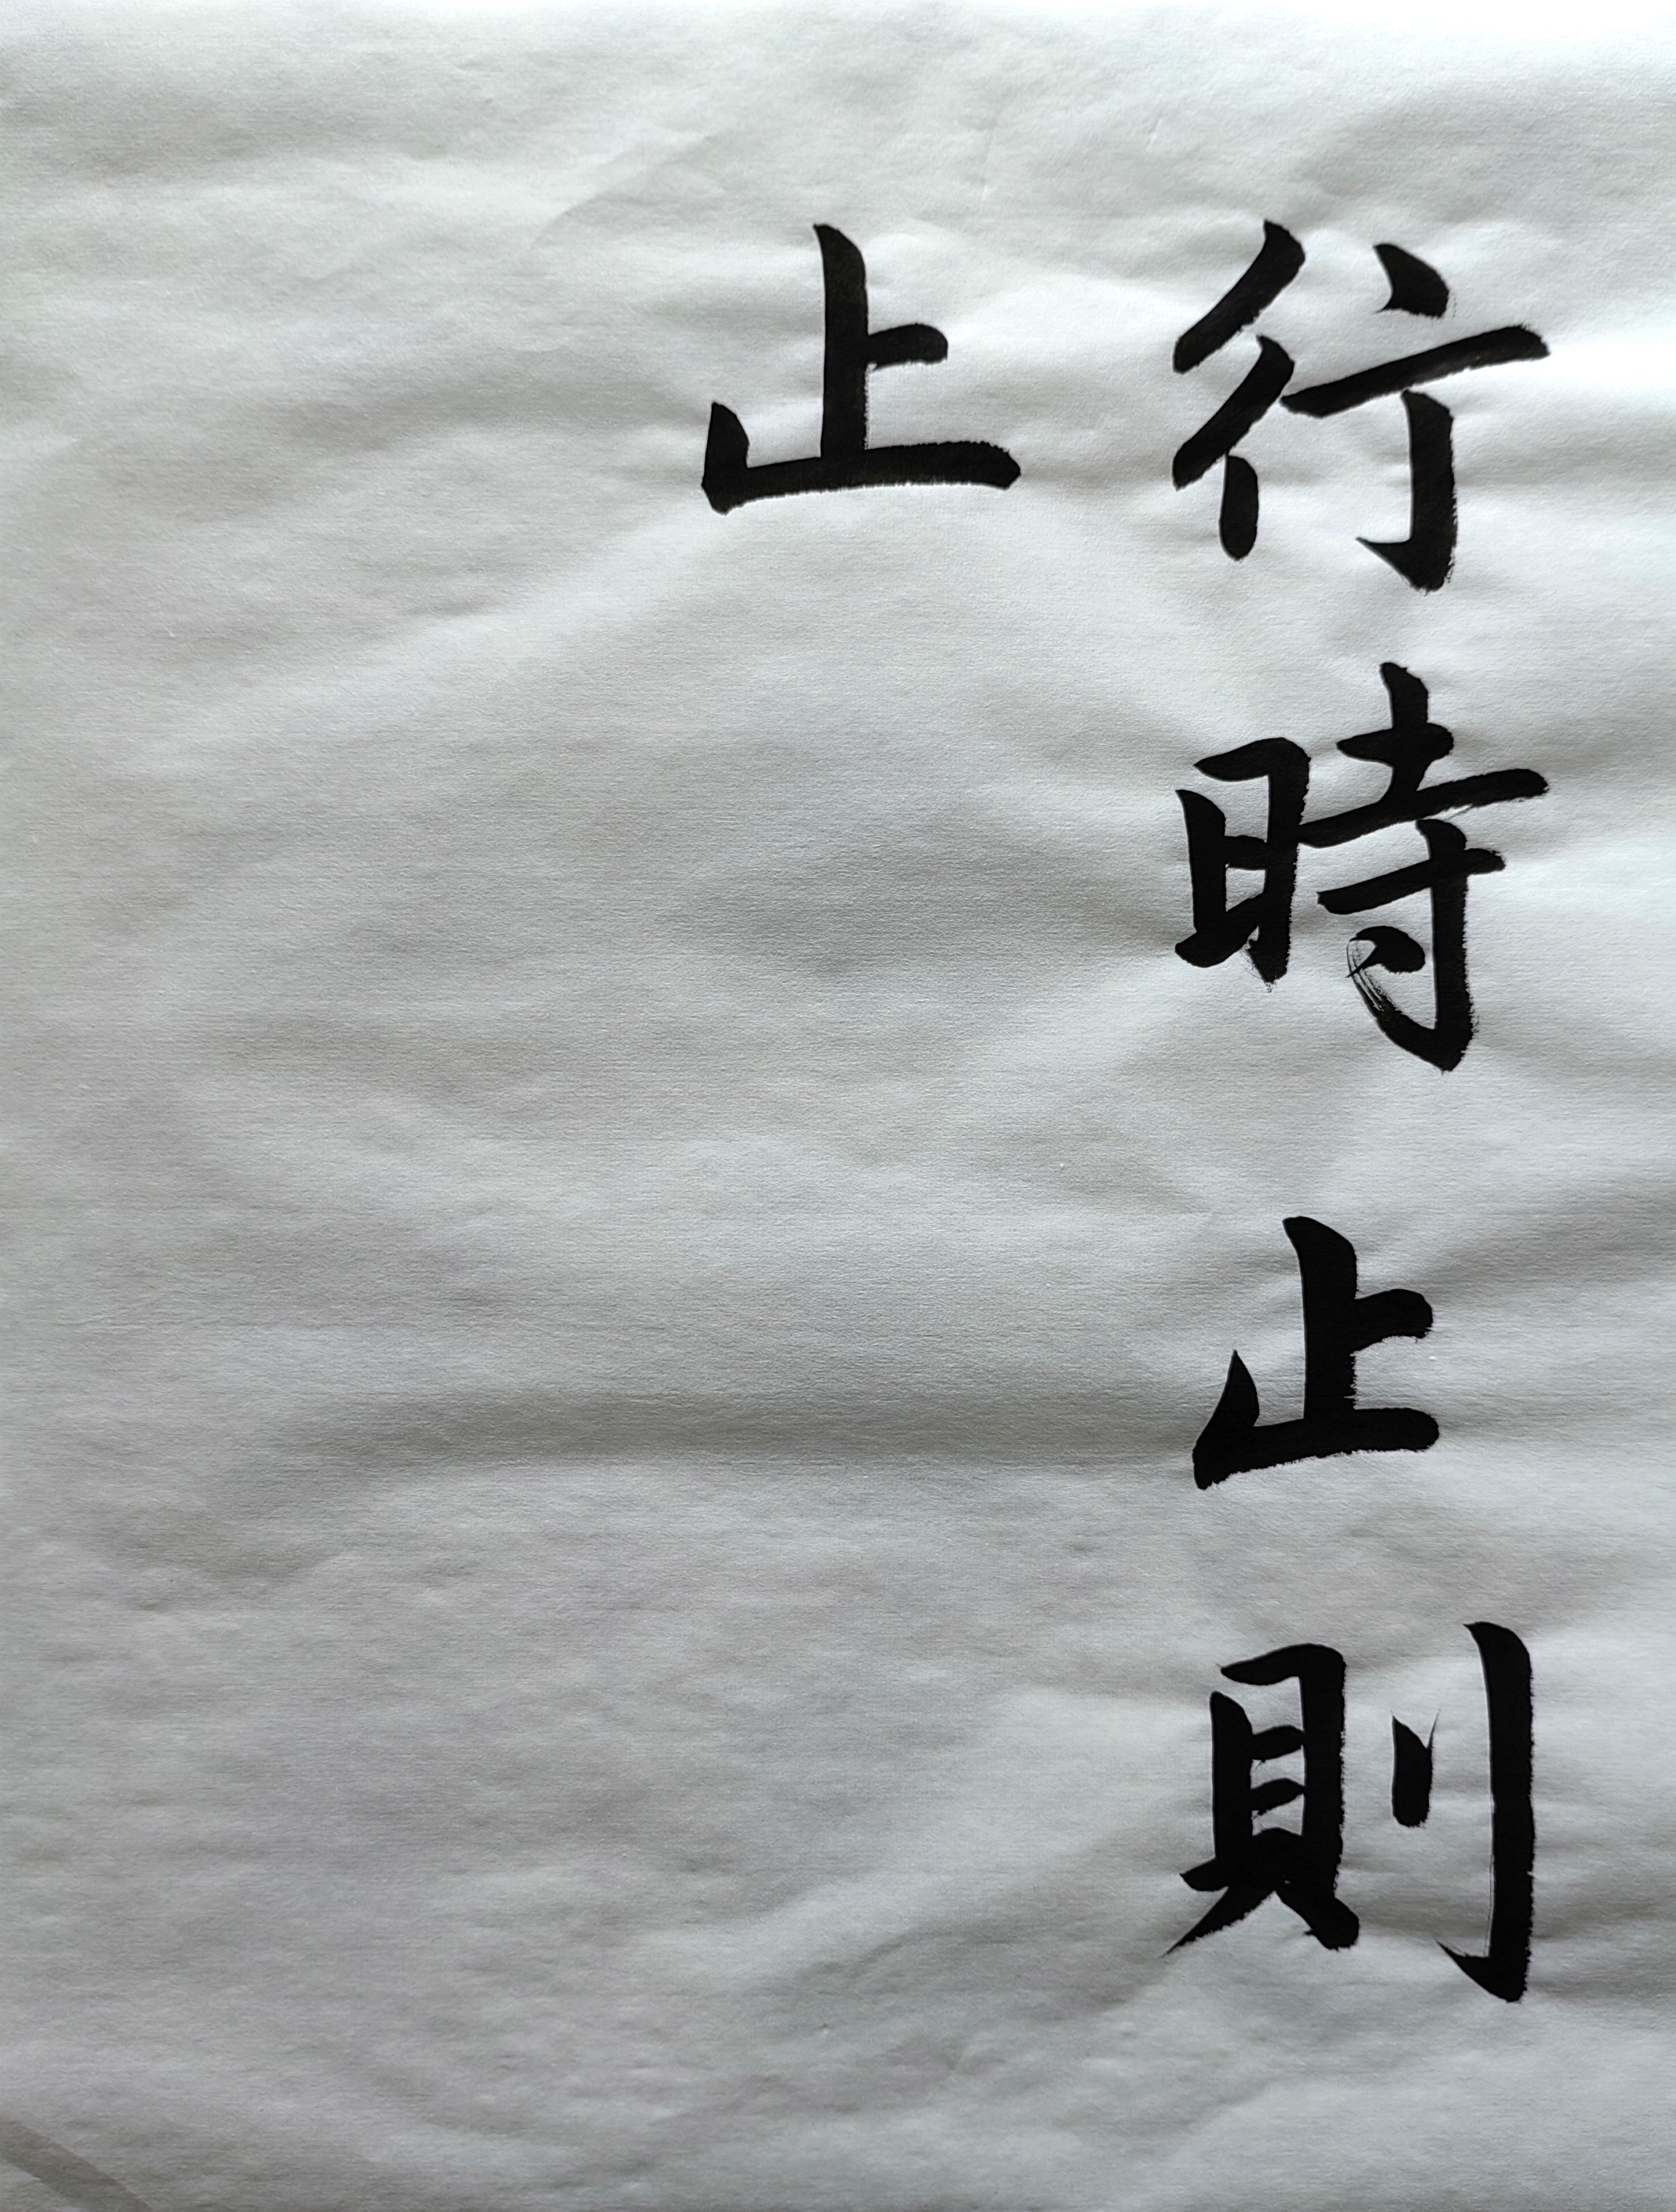 行時止則
止